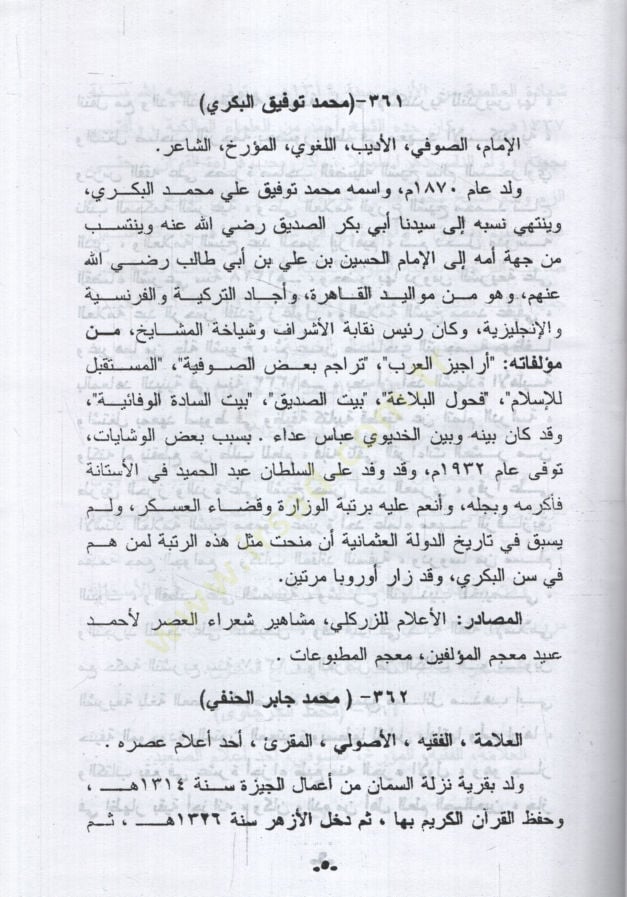 ٣٦١-(محمد توفيق البكري)
الإمام، الصوفي، الأديب، اللغوي، المؤرخ، الشاعر.
ولد عام ١٨٧٠م، واسمه محمد توفيق علي محمد البكري،
وينتهي نسبه إلى سيدنا أبي بكر الصديق رضي الله عنه وينتسب
من جهة أمه إلى الإمام الحسين بن علي بن أبي طالب رضي الله
عنهم، وهو من مواليد القاهرة، وأجاد التركية والفرنسية
والإنجليزية، وكان رئيس نقابة الأشراف وشياخة المشايخ، من
مؤلفاته: "أراجيز العرب"، "تراجم بعض الصوفية"، "المستقبل
للإسلام"، "فحول البلاغة"، "بيت الصديق"، "بيت السادة الوفائية"،
وقد كان بينه وبين الخديوي عباس عداء . بسبب بعض الوشايات،
توفى عام ١٩٣٢م، وقد وفد على السلطان عبد الحميد في الأستانة
فأكرمه وبجله، وأنعم عليه برتبة الوزارة وقضاء العسكر، ولم
يسبق في تاريخ الدولة العثمانية أن منحت مثل هذه الرتبة لمن هم
في سن البكري، وقد زار أوروبا مرتين.
المصادر: الأعلام للزركلي، مشاهير شعراء العصر لأحمد
عبيد معجم المؤلفين، معجم المطبوعات .
٣٦٢- ( محمد جابر الحنفي)
العلامة ، الفقيه ، الأصولي ، المقرئ ، أحد أعلام عصره .
ولد بقرية نزلة السمان من أعمال الجيزة سنة ١٣١٤هــ ،
وحفظ القرآن الكريم بها ، ثم دخل الأزهر سنة ١٣٢٦هـــ ، ثم